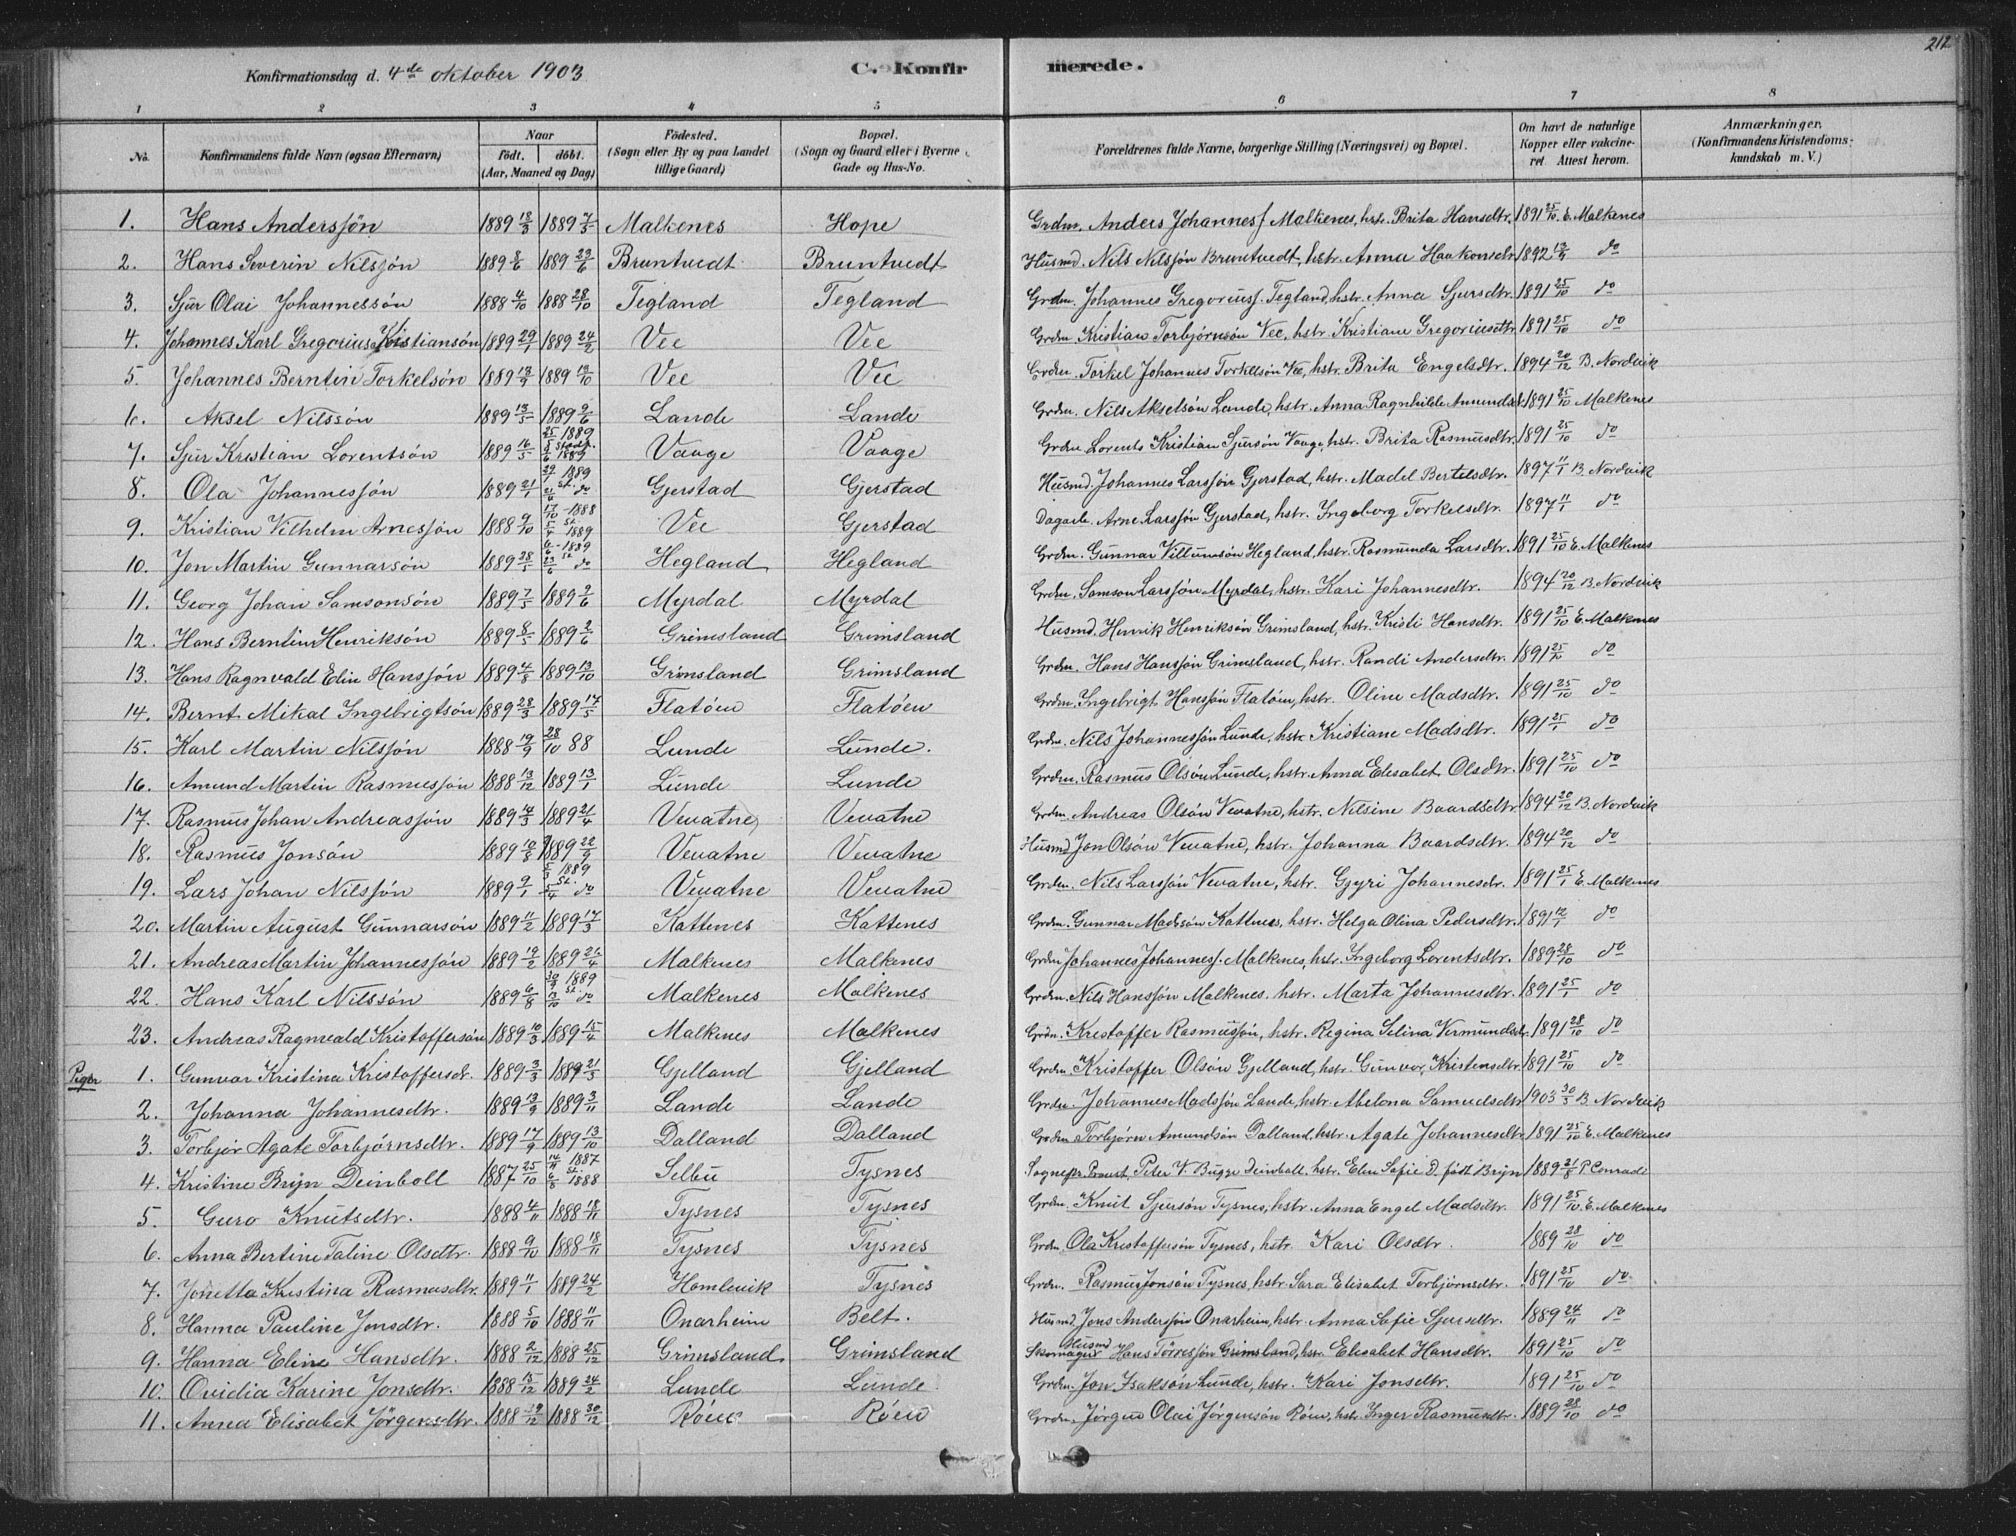 212
Konfirmationsdag d. 4de oktober 1903
C. Konfirmerede.
1 2 3 4 5 6 7 8
No. Konfirmandens fulde Navn (ogsaa Efternavn) Naar födt. döbt. (Aar, Maaned og Dag) Födested. (Sogn eller By og paa Landet tillige Gaard) Bopæl. (Sogn og Gaard eller i Byerne Gade og Hus-No. Forældrenes fulde Navne, borgerlige Stilling (Næringsvei) og Bopæl. Om havt de naturlige Kopper eller vakcineret. Attest herom. Anmærkninger. (Konfirmandens Kristendomskundskab m. V.)
1. Hans Andersjøn 1889 18/3 1889 7/5 Malkenes Hope Grdm. Anders Johannesj Malkenes, hstr. Brita Hansdtr. 1891 25/10 E. Malkenes
2. Hans Severin Nilsjøn 1889 8/6 1889 29/6 Bruntvedt Bruntvedt Husmd. Nils Nilsjøn Bruntvedt, hstr. Anna Haakonsdtr 1892 do
3. Sjur Olai Johannessøn 1888 4/10 1888 28/10 Tegland Tegland Grdm. Johannes Gregoriusj. Tegland, hstr. Anna Sjursdtr. 1891 25/10 do
4. Johannes Karl Gregorius Kristiansøn 1889 29/1 1889 24/2 Vee Vee Grdm. Kristian Torbjørnsøn Vee, hstr. Kristiane Gregoriusdtr 1891 25/10 do
5. Johannes Berntin Torkelsøn 1889 13/9 1889 13/10 Vee Vee Grdm. Torkel Johannes Torkelsøn Vee, hstr. Brita Engelsdtr. 1894 20/12 B. Nordvik
6. Aksel Nilssøn 1889 13/5 1889 9/6 Lande Lande Grdm. Nils Akselsøn Lande, hstr. Anna Ragnhilde Amundsdtr 1891 25/10 Malkenes
7. Sjur Kristian Lorentsøn 1889 16/5 25/5 1889 Stadf. 1889 Vaage Vaage Grdm. Lorents Kristian Sjursøn Vaage, hstr. Brita Rasmusdtr. 1891 25/10 do
8. Ola Johannesjøn 1889 21/1 1889 St. do Gjerstad Gjerstad Husmd. Johannes Larsjøn Gjerstad, hstr. Madel Bertelsdtr. 1897 11/1 B. Nordvik
9. Kristian Vilhelm Arnesjøn 1888 9/10 17/10 1888 St. 5/4 1889 Vee Gjerstad Dagarb. Arne Larsjøn Gjerstad, hstr. Ingeborg Torkelsdtr. 1897 11/1 do
10. Jon Martin Gunnarsøn 1889 28/5 6/6 1889 St. 23/6 do Hegland Hegland Grdm. Gunnar Villumsøn Hegland, hstr. Rasmunda Larsdtr. 1891 25/10 E. Malkenes
11. Georg Johan Samsonsøn 1889 7/5 1889 9/6 Myrdal Myrdal Grdm. Samson Larsjøn Myrdal, hstr. Kari Johannesdtr. 1894 20/12 B. Nordvik
12. Hans Berntin Henriksøn 1889 8/5 1889 2/6 Grimsland Grimsland Husmd. Henrik Henriksøn Grimsland, hstr. Kristi Hansdtr. 1891 25/10 E. Malkenes
13. Hans Ragnvald Elin Hansjøn 1889 4/8 1889 13/10 Grimsland Grimsland Grdm. Hans Hansjøn Grimsland, hstr. Randi Andersdtr. 1891 25/10 do
14. Bernt Mikal Ingebrigtsøn 1889 28/3 1889 17/5 Flatøen Flatøen Grdm. Ingebrigt Hansjøn Flatøen, hstr. Oline Madsdtr. 1891 25/10 do
15. Karl Martin Nilsjøn 1888 19/9 28/10 88 Lunde Lunde. Grdm. Nils Johannesjøn Lunde, hstr. Kristiane Madsdtr. 1891 25/1 do
16. Amund Martin Rasmusjøn 1888 13/12 1889 13/1 Lunde Lunde Grdm. Rasmus Olsøn Lunde, hstr. Anna Elisabet Olsdtr. 1891 25/10 do
17. Rasmus Johan Andreasjøn 1889 14/3 1889 21/4 Vevatne Vevatne Grdm. Andreas Olsøn Vevatne, hstr. Nilsine Baardsdtr. 1894 20/12 B. Nordvik
18. Rasmus Jonsøn 1889 10/8 1889 22/9 Vevatne Vevatne Husmd. Jon Olsøn Vevatne, hstr. Johanna Baardsdtr. 1894 20/12 do
19. Lars Johan Nilsjøn 1889 9/1 5/3 1889 St. 5/4 do Vevatne Vevatne Grdm. Nils Larsjøn Vevatne, hstr. Gjyri Johannesdtr. 1891 25/1 E. Malkenes
20. Martin August Gunnarsøn 1889 11/2 1889 17/3 Kattenes Kattenes Grdm. Gunnar Madssøn Kattnes, hstr. Helga Olina Pedersdtr. 1891 do
21. Andreas Martin Johannesjøn 1889 19/2 1889 21/4 Malkenes Malkenes Grdm. Johannes Johannesj. Malkenes, hstr. Ingeborg Lorentsdtr. 1889 28/10 do
22. Hans Karl Nilssøn 1889 6/8 1889 St. 13/10 do Malkenes Malkenes Grdm. Nils Hansjøn Malkenes, hstr. Marta Johannesdtr. 1891 25/1 do
23. Andreas Ragnvald Kristoffersøn 1889 10/3 1889 15/4 Malkenes Malkenes Grdm. Kristoffer Rasmusjøn, hstr. Regina Selina Vermundsdtr. 1891 28/10 do
Piger 1. Gunvor Kristina Kristoffersdtr. 1889 3/3 1889 21/3 Gjelland Gjelland Grdm. Kristoffer Olsøn Gjelland, hstr. Gunvor Kristensdtr. 1891 25/10 do
2. Johanna Johannesdtr. 1889 13/9 1889 3/11 Lande Lande Grdm. Johannes Madsjøn Lande, hstr. Abelona Samuelsdtr 1903 30/3 B. Nordvik
3. Torbjør Agate Torbjørnsdtr. 1889 17/9 1889 13/10 Dalland Dalland Grdm. Torbjørn Amundsøn Dalland, hstr. Agate Johannesdtr. 1891 25/10 E. Malkenes
4. Kristine Brÿn Deinboll 1887 25/10 14/11 1887 St. 6/8 1888 Selbu Tysnes Sognepr. Provst Peter V. Bugge Deinboll, hstr. Elen Sofie D. født Brÿn 1889 21/8 P. Conradi
5. Guro Knutsdtr. 1888 4/11 1888 18/11 Tysnes Tysnes Grdm. Knut Sjursøn Tysnes, hstr. Anna Engel Madsdtr. 1891 25/10 E. Malkenes
6. Anna Bertine Taline Olsdtr. 1888 9/10 1888 18/11 Tysnes Tysnes Grdm. Ola Kristoffersøn Tysnes, hstr. Kari Olsdtr. 1889 28/10 do
7. Jonetta Kristina Rasmusdtr. 1889 11/1 1889 24/2 Hamlevik Tysnes Grdm. Rasmus Jonsøn Tysnes, hstr. Sara Elisabet Torbjørnsdtr. 1891 25/10 do
8. Hanna Pauline Jonsdtr. 1888 5/10 1888 11/11 Onarheim Belt. Husmd. Jons Andersjøn Onarheim, hstr. Anna Sofie Sjursdtr. 1889 24/11 do
9. Hanna Eline Hansdtr. 1888 2/12 1888 25/12 Grimsland Grimsland Husmd Skomager Hans Tørresjøn Grimsland, hstr. Elisabet Hansdtr. 1891 25/10 do
10. Ovidia Karine Jonsdtr. 1888 15/12 1889 24/2 Lunde Lunde Grdm. Jon Isaksøn Lunde, hstr. Kari Jonsdtr. 1891 25/10 do
11. Anna Elisabet Jörgensdtr. 1888 1888 30/12 Røen Røen Grdm. Jörgen Olai Jörgensøn Røen, hstr. Inger Rasmusdtr. 1889 28/10 do